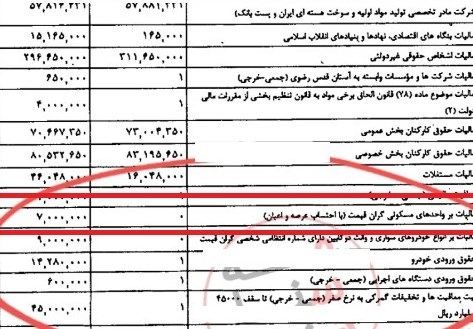 شرکت مادر تخصصی تولید مواد اولیه و سوخت هسته ای ایران و پست بانک) ۵۷,۸۸۱,۲۲۱ ۵۷,۸۱۲,۲۲۱
مالیات بنگاه های اقتصادی، نهادها و بنیادهای انقلاب اسلامی ۱۶۵,۰۰۰ ۱۵,۱۶۵,۰۰۰
مالیات اشخاص حقوقی غیردولتی ۳۱۱,۶۵۰,۰۰۰ ۲۹۶,۶۵۰,۰۰۰
مالیات شرکت ها و مؤسسات وابسته به آستان قدس رضوی (جمعی-خرجی) ۱ ۶۵۰,۰۰۰
مالیات موضوع ماده (۷۸) قانون الحاق برخی مواد به قانون تنظیم بخشی از مقررات مالی
دولت (۲) ۱ ۴,۰۰۰,۰۰۰
مالیات حقوق کارکنان بخش عمومی ۷۳,۰۰۴,۳۵۰ ۷۰,۴۶۷,۳۵۰
مالیات حقوق کارکنان بخش خصوصی ۸۳,۱۹۵,۶۵۰ ۸۰,۵۳۲,۶۵۰
مالیات مستغلات ۱۶,۰۴۸,۰۰۰ ۴۶,۰۴۸,۰۰۰
مالیات بر واحدهای مسکونی گران قیمت (با احتساب عرصه و اعیان) ۰ ۷,۰۰۰,۰۰۰
مالیات بر انواع خودروهای سواری و وانت دو کابین دارای شماره انتظامی شخصی گران قیمت ۰ ۹,۰۰۰,۰۰۰
حقوق ورودی خودرو ۱ ۱۴,۲۸۰,۰۰۰
حقوق ورودی دستگاه های اجرایی (جمعی - خرجی) ۱ ۶۰۰,۰۰۰
معافیت ها و تخفیفات گمرکی به نرخ صفر (جمعی - خرجی) تا سقف ۴۵۰۰۰
میلیارد ریال ۱ ۴۵,۰۰۰,۰۰۰